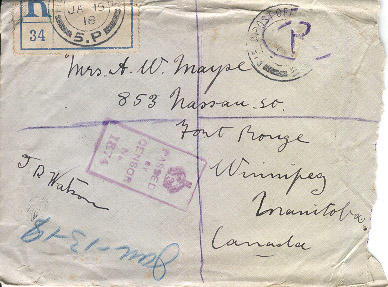 R
34
JA 15
18
S.P
FIELD POST OFF
P
Mrs. A. W. Mayse
853 Nassau St.
Fort Rouge
Winnipeg
Manitoba
Canada
PASSED
BY
CENSOR
J D Watson
Jan-13-18